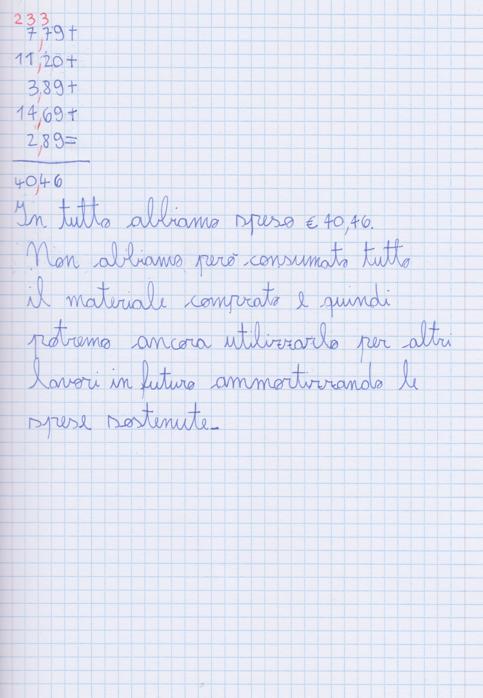 2 3 3
7,79+
11,20+
3,89+
14,69+
2,89=
40,46
In tutto abbiamo speso € 40,46.
Non abbiamo però consumato tutto
il materiale comprato e quindi
potremo ancora utilizzarlo per altri
lavori in futuro ammortizzando le
spese sostenute.